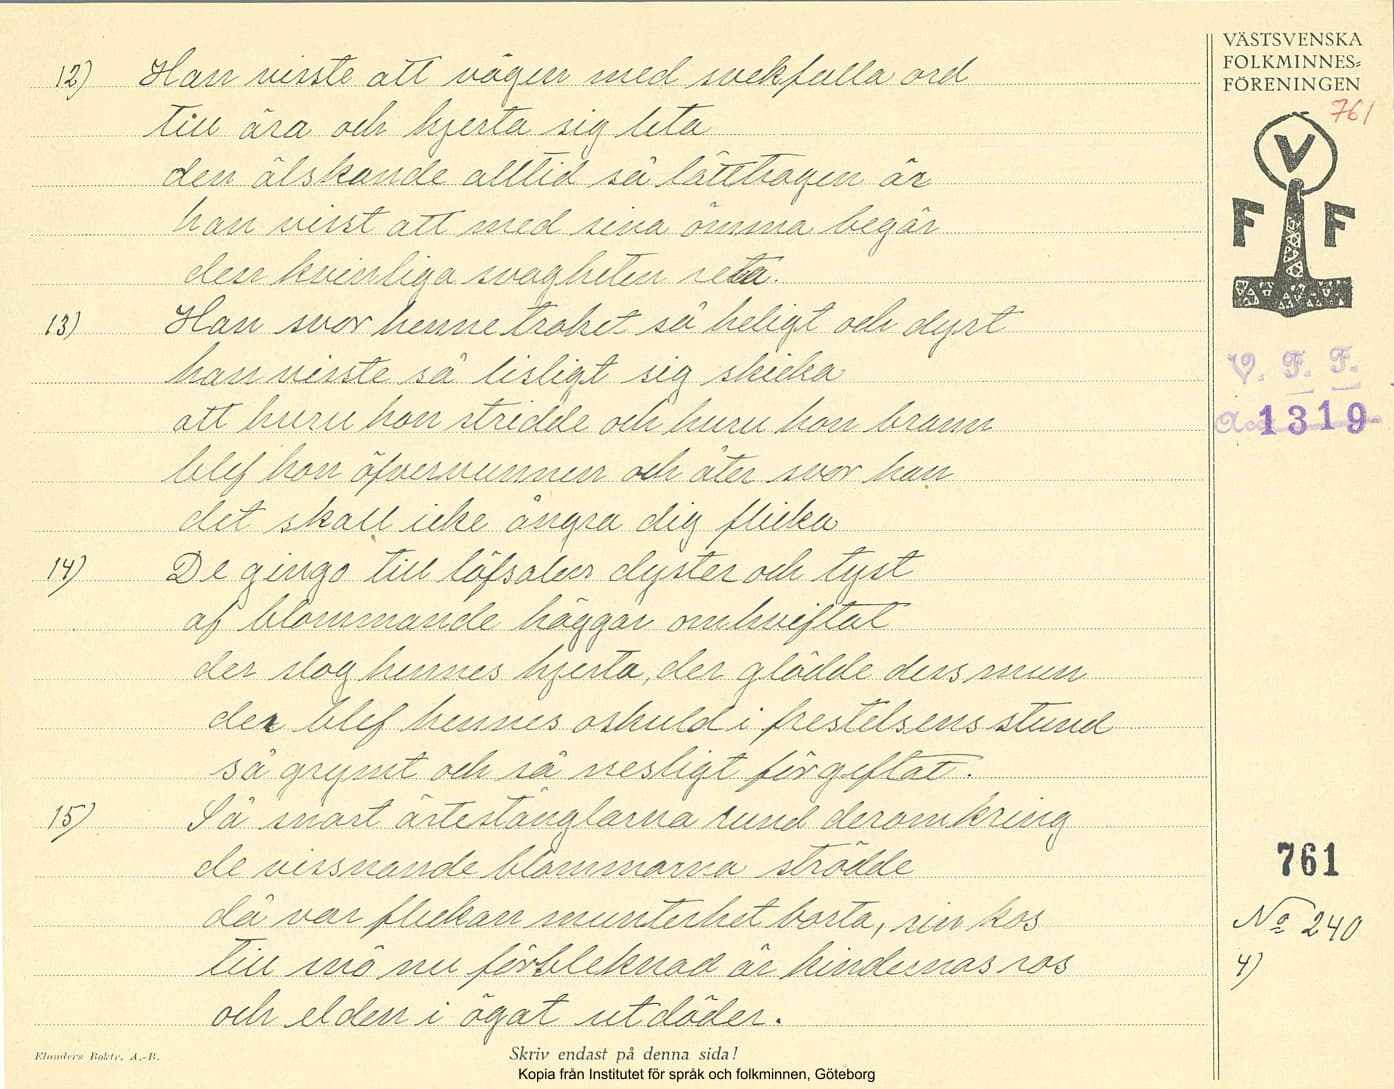 VÄSTSVENSKA
FOLKMINNES=
FÖRENINGEN
761
V
F F
V. F. F.
Acc 1319
12) Han visste att vägen med svekfulla ord
till ära och hjerta sig leta
den älskande alltid så lätttrogen är
han visst att med sina ömma begär
den kvinliga svagheten reta.
13) Han svor henne trohet så heligt och dyrt
han visste så lisligt sig skicka
att huru hon stridde och huru hon brann
blef hon öfvervunnen och åter svor han
det skall icke ångra dig flicka
14) De gingo till löfsalen dyster och tyst
af blommande häggar omhviftat
der slog hennes hjerta, der glödde dess mun
der blef hennes oskuld i frestelsens stund
så grymt och så nesligt förgiftat.
15) Så snart ärtestänglarna rund deromkring
de vissnande blommorna strödde
då var flickan munterhet borta, sin kos
till snö nu förbleknad är kindernas ros
och elden i ögat utdöder.
761
No 240
4)
Elanders Boktr. A.-B.
Skriv endast på denna sida!
Kopia från Institutet för språk och folkminnen, Göteborg